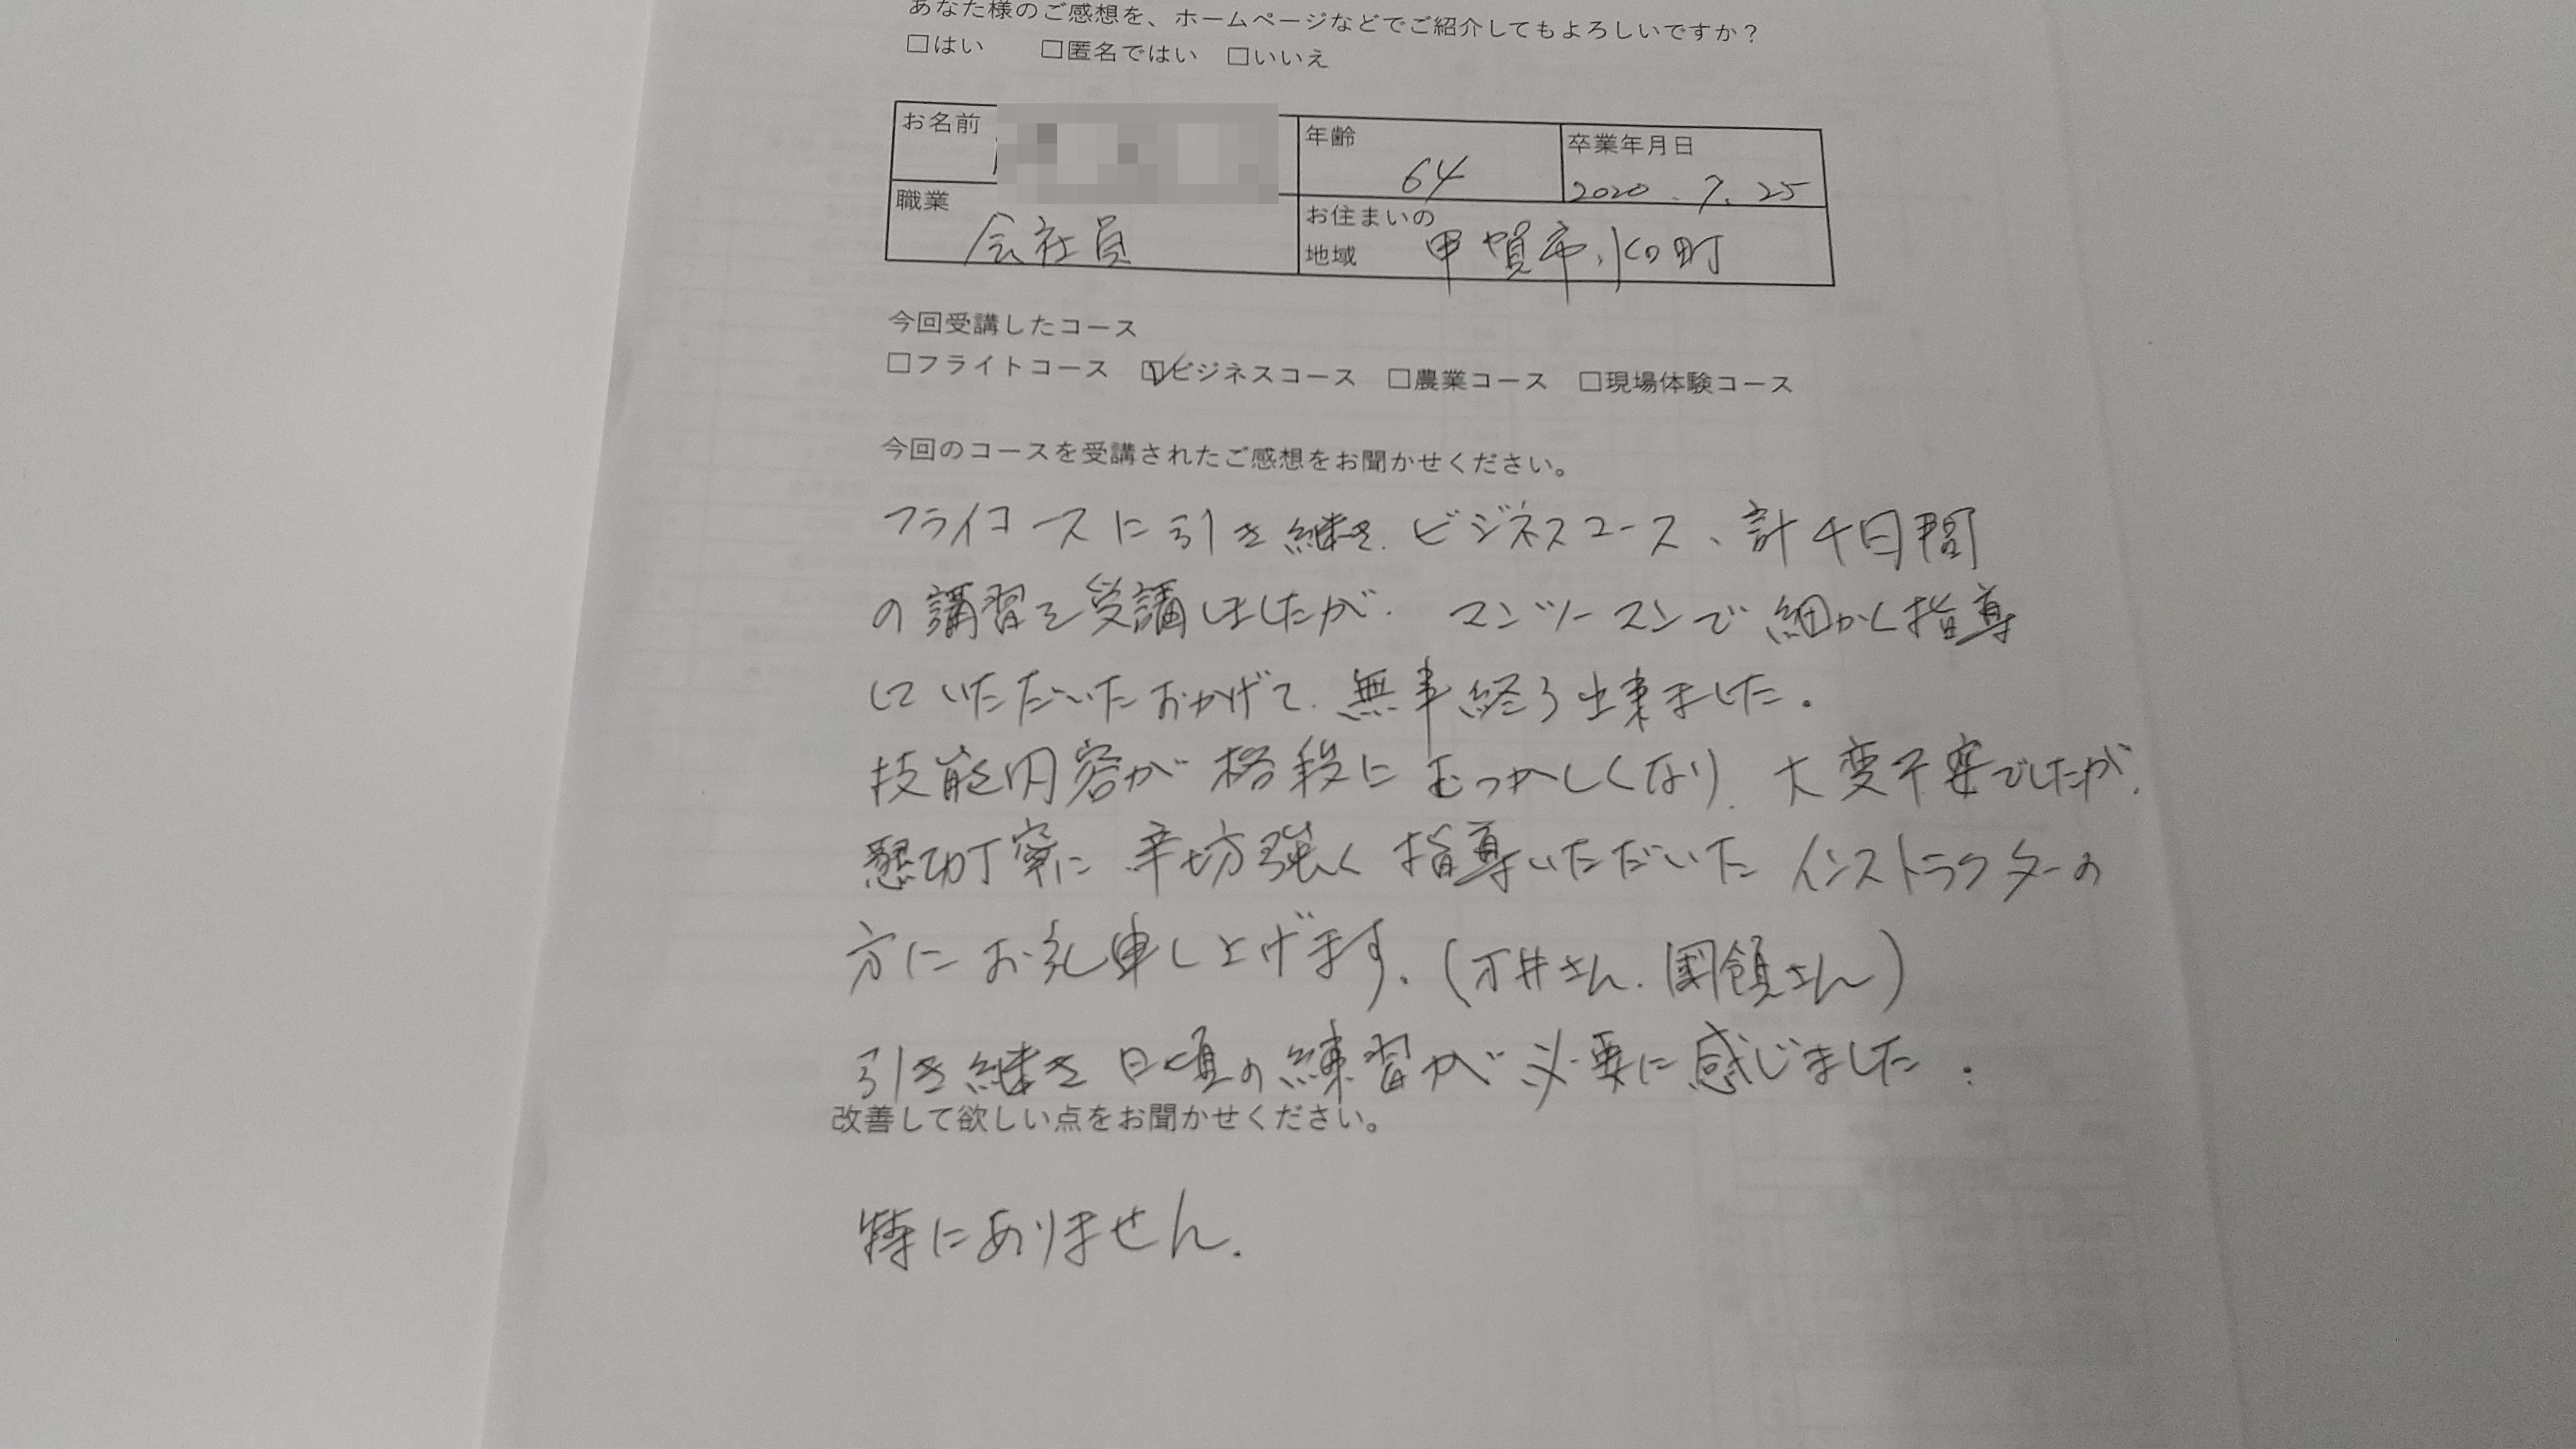 あなた様のご感想を、ホームページなどでご紹介してもよろしいですか？
□はい　□匿名ではい　□いいえ
お名前
年齢
64
卒業年月日
2020.7.25
職業
会社員
お住まいの
地域
甲賀市水口町
今回受講したコース
□フライトコース　☑ビジネスコース　□農業コース　□現場体験コース
今回のコースを受講されたご感想をお聞かせください。
フライコースに引き継き、ビジネスコース、計4日間
の講習を受講しましたが、マンツーマンで細かく指導
していただいたおかげで、無事終了出来ました。
技能内容が格段にむつかしくなり、大変不安でしたが、
懇切丁寧に辛坊強く指導いただいたインストラクターの
方にお礼申し上げます。(さん、さん)
引き継き日頃の練習が必要に感じました。
改善して欲しい点をお聞かせください。
特にありません。